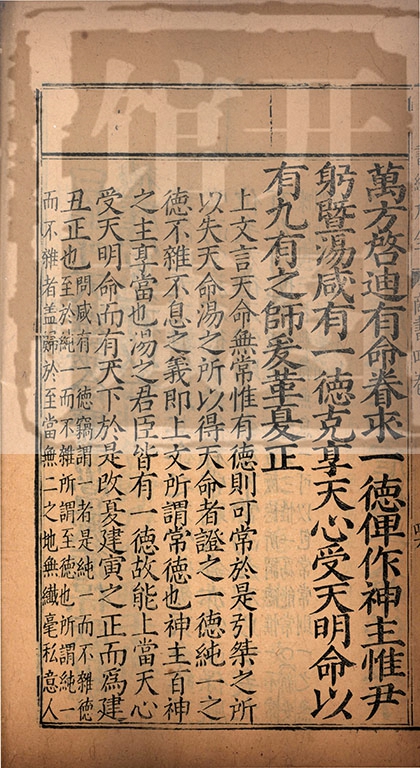 萬方啓迪有命眷求一德俾作神主惟尹
躬暨湯咸有一德克享天心受天明命以
有九有之師爰革夏正
上文言天命無常惟有德則可常於是引桀之所
以失天命湯之所以得天命者證之一德純一之
德不雜不息之義即上文所謂常德也神主百神
之主享當也湯之君臣皆有一德故能上當天心
受天明命而有天下於是改夏建寅之正而爲建
丑正也問咸有一德竊謂一者是純一而不雜德
至於純一而不雜所謂至德也所謂純一
而不雜者盖歸於至當無二之地無纖毫私意人